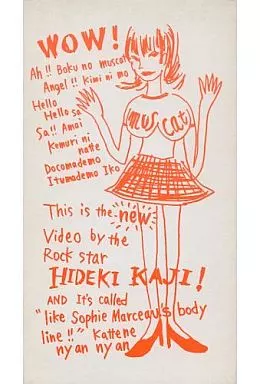 WOW!
Ah!! Boku no muscat
Angel!! Kimi ni mo
Hello
Hello sa
Sa!! Amai
Kemuri ni
natte
Docomodemo
Itumademo Iko
muscat
This is the new
Video by the
Rock star
HIDEKI KAJI!
AND It's called
"like Sophie Marceau's body
line!!" Kattene
nyan nyan